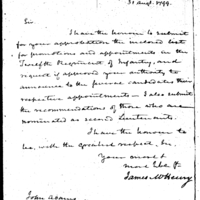 31 Augt. 1799.
Sir
I have the honour to submit
for your approbation the inclosed list
for promotions and appointments in the
Twelfth Regiment of Infantry, and
request if approved your authority to
announce to the persons candidates their
respective appointments — I also submit
the recommendations of those who are
nominated as second Lieutenants.
I have the honour to
be, with the greatest respect, Sir,
Your most
most Obt
James McHenry
John Adams